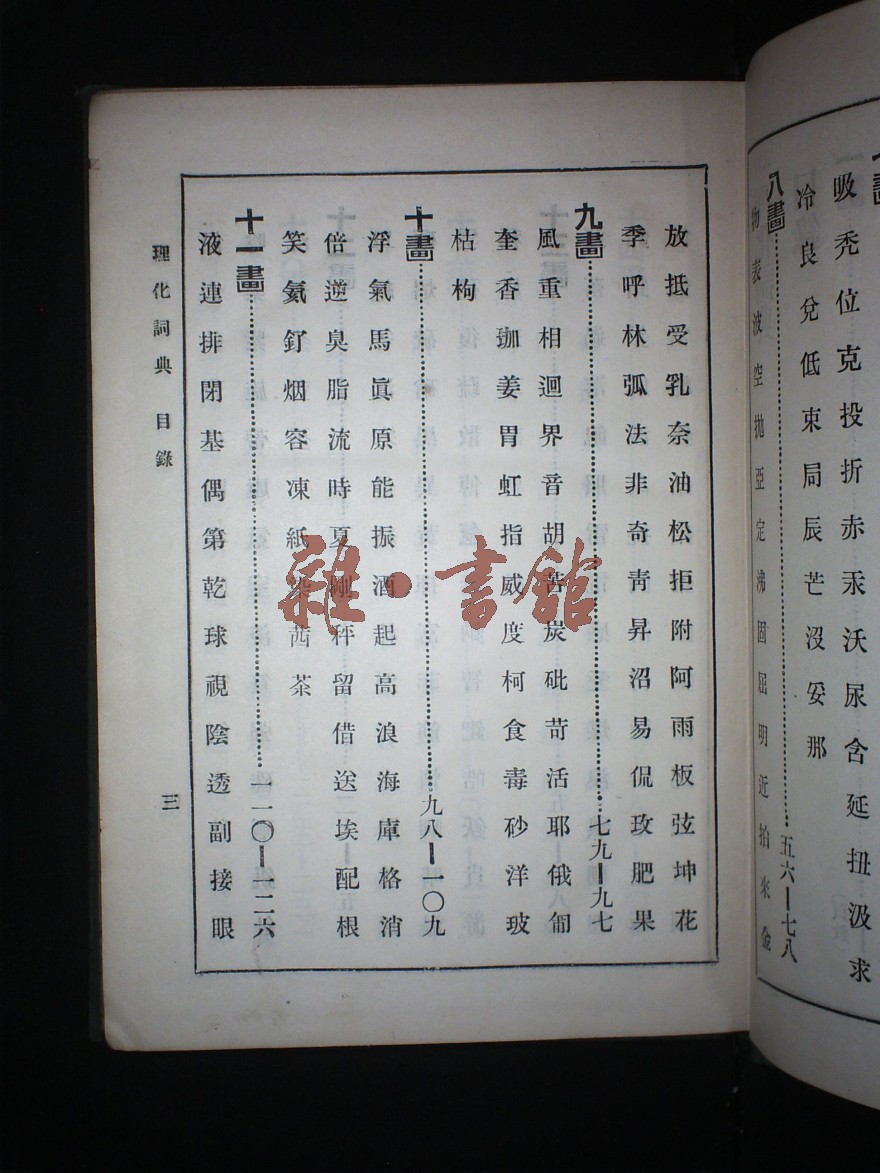 吸禿位克投折赤汞沃尿含延扭汲求
冷良兌低束局辰芒沒妥那
八畫……五六—七八
物表波空拋亞定沸固屈明近拍來金
放抵受乳奈油松拒附阿雨板弦坤花
季呼林弧法非奇青昇沼易侃玫肥果
九畫……七九—九七
風重相迴界音胡苦炭砒苛活耶俄匍
奎香珈姜胃虹指威度柯食毒砂洋玻
枯枸
十畫……九八—一〇九
浮氣馬眞原能振酒起高浪海庫格消
倍逆臭脂流時夏剛秤留借送埃配根
笑氦釕烟容凍紙染茜茶
十一畫……一一〇—一二六
液連排閉基偶第乾球視陰透副接眼
理化詞典 目錄 三
雜·書館